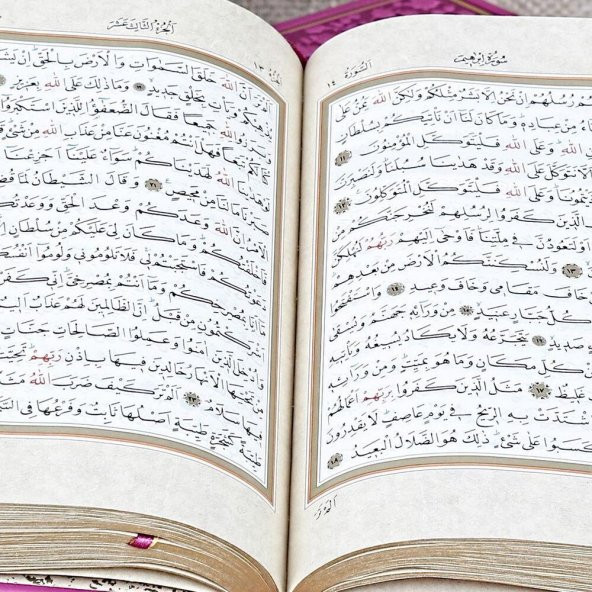 سُورَةُ اِبْرٰهِيمَ
اَلسُّورَةُ ١٤
رُسُلُهُمْ اِنْ نَحْنُ اِلَّا بَشَرٌ مِثْلُكُمْ وَلٰكِنَّ اللّٰهَ يَمُنُّ عَلٰى
مِنْ عِبَادِهِ وَمَا كَانَ لَنَا اَنْ نَأْتِيَكُمْ بِسُلْطَانٍ
اللّٰهِ وَعَلَى اللّٰهِ فَلْيَتَوَكَّلِ الْمُؤْمِنُونَ ١١
اَلَّا نَتَوَكَّلَ عَلَى اللّٰهِ وَقَدْ هَدٰينَا سُبُلَنَا وَلَنَصْبِرَنَّ
وَعَلَى اللّٰهِ فَلْيَتَوَكَّلِ الْمُتَوَكِّلُونَ ١٢
الَّذِينَ كَفَرُوا لِرُسُلِهِمْ لَنُخْرِجَنَّكُمْ مِنْ
اَوْ لَتَعُودُنَّ فِي مِلَّتِنَا فَاَوْحٰى اِلَيْهِمْ رَبُّهُمْ لَنُهْلِكَنَّ
١٣ وَلَنُسْكِنَنَّكُمُ الْاَرْضَ مِنْ بَعْدِهِمْ
خَافَ مَقَامِي وَخَافَ وَعِيدِ ١٤ وَاسْتَفْتَحُوا
كُلُّ جَبَّارٍ عَنِيدٍ ١٥ مِنْ وَرَائِهِ جَهَنَّمُ وَيُسْقٰى
صَدِيدٍ ١٦ يَتَجَرَّعُهُ وَلَا يَكَادُ يُسِيغُهُ وَيَأْتِيهِ
مِنْ كُلِّ مَكَانٍ وَمَا هُوَ بِمَيِّتٍ وَمِنْ وَرَائِهِ
غَلِيظٌ ١٧ مَثَلُ الَّذِينَ كَفَرُوا بِرَبِّهِمْ اَعْمَالُهُمْ
اشْتَدَّتْ بِهِ الرِّيحُ فِي يَوْمٍ عَاصِفٍ لَا يَقْدِرُونَ
كَسَبُوا عَلٰى شَيْءٍ ذٰلِكَ هُوَ الضَّلَالُ الْبَعِيدُ ١٨
اَلَمْ تَرَ
اَلْجُزْءُ الثَّالِثَ عَشَرَ
١٣
اَلَمْ تَرَ اَنَّ اللّٰهَ خَلَقَ السَّمٰوَاتِ وَالْاَرْضَ بِالْحَقِّ اِنْ يَشَأْ
يُذْهِبْكُمْ وَيَأْتِ بِخَلْقٍ جَدِيدٍ ١٩ وَمَا ذٰلِكَ عَلَى اللّٰهِ بِعَزِيزٍ
وَبَرَزُوا لِلّٰهِ جَمِيعًا فَقَالَ الضُّعَفٰؤُا لِلَّذِينَ اسْتَكْبَرُوا
لَكُمْ تَبَعًا فَهَلْ اَنْتُمْ مُغْنُونَ عَنَّا مِنْ عَذَابِ اللّٰهِ مِنْ شَيْءٍ
هَدٰينَا اللّٰهُ لَهَدَيْنَاكُمْ سَوَاءٌ عَلَيْنَا اَجَزِعْنَا
صَبَرْنَا مَا لَنَا مِنْ مَحِيصٍ ٢١ وَقَالَ الشَّيْطَانُ لَمَّا
الْاَمْرُ اِنَّ اللّٰهَ وَعَدَكُمْ وَعْدَ الْحَقِّ وَوَعَدْتُكُمْ
فَاَخْلَفْتُكُمْ وَمَا كَانَ لِيَ عَلَيْكُمْ مِنْ سُلْطَانٍ
دَعَوْتُكُمْ فَاسْتَجَبْتُمْ لِي فَلَا تَلُومُونِي وَلُومُوا اَنْفُسَكُمْ
مَا اَنَا بِمُصْرِخِكُمْ وَمَا اَنْتُمْ بِمُصْرِخِيَّ اِنِّي كَفَرْتُ
اَشْرَكْتُمُونِ مِنْ قَبْلُ اِنَّ الظَّالِمِينَ لَهُمْ عَذَابٌ اَلِيمٌ
وَاُدْخِلَ الَّذِينَ اٰمَنُوا وَعَمِلُوا الصَّالِحَاتِ جَنَّاتٍ
مِنْ تَحْتِهَا الْاَنْهَارُ خَالِدِينَ فِيهَا بِاِذْنِ رَبِّهِمْ تَحِيَّتُهُمْ
فِيهَا سَلَامٌ ٢٣ اَلَمْ تَرَ كَيْفَ ضَرَبَ اللّٰهُ مَثَلًا
طَيِّبَةً كَشَجَرَةٍ طَيِّبَةٍ اَصْلُهَا ثَابِتٌ وَفَرْعُهَا فِي السَّمَاءِ